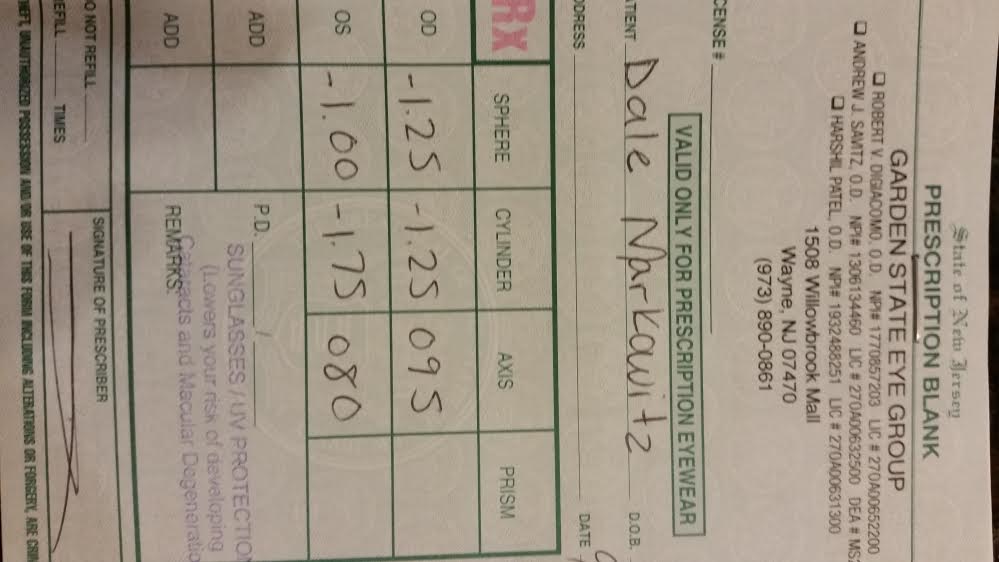 State of New Jersey
PRESCRIPTION BLANK
GARDEN STATE EYE GROUP
☐ ROBERT V. DIGIACOMO, O.D. NPI# 1770857203 LIC # 270A00652200
☐ ANDREW J. SAVITZ, O.D. NPI# 1306134460 LIC # 270A00632500 DEA # MS2
☐ HARSHIL PATEL, O.D. NPI# 1932488251 LIC # 270A00631300
1508 Willowbrook Mall
Wayne, NJ 07470
(973) 890-0861
CENSE #
VALID ONLY FOR PRESCRIPTION EYEWEAR
TIENT Dale Markowitz D.O.B.
DRESS DATE
RX SPHERE CYLINDER AXIS PRISM
OD -1.25 -1.25 095
OS -1.00 -1.75 080
ADD P.D. /
ADD REMARKS:
SUNGLASSES / UV PROTECTION
(Lowers your risk of developing
Cataracts and Macular Degeneratio
O NOT REFILL SIGNATURE OF PRESCRIBER
EFILL TIMES
HEFT, UNAUTHORIZED POSSESSION AND/OR USE OF THIS FORM INCLUDING ALTERATIONS OR FORGERY, ARE CRIM